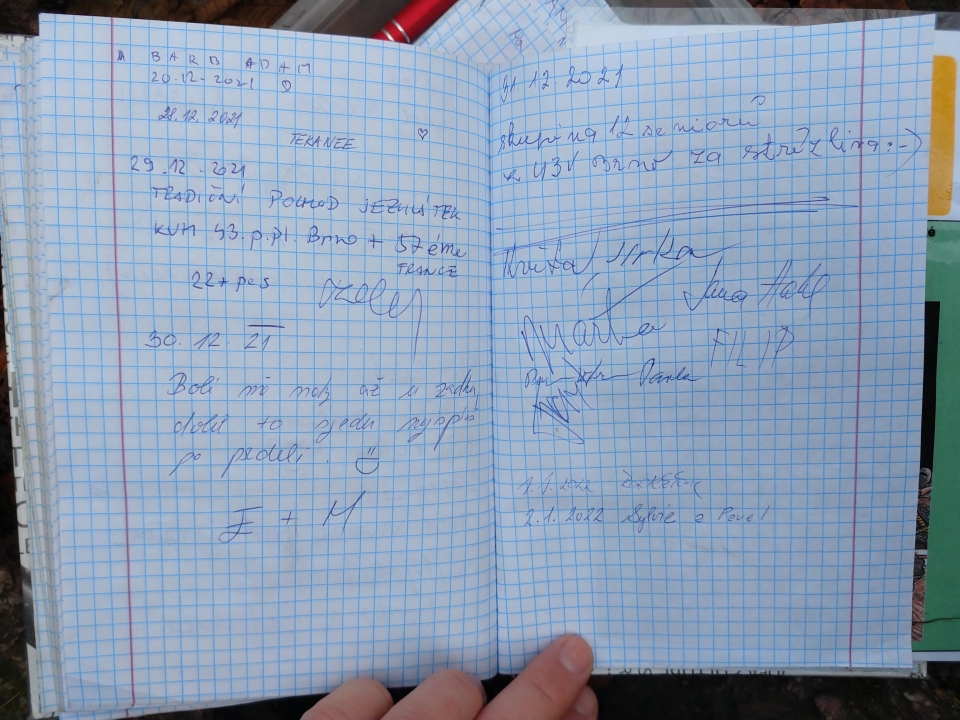 BARB ADAM
20.12.2021
28.12.2021
TEKANEE
29.12.2021
TRADIČNÍ POCHOD JEZULÁTEK
KVH 43.p.pl. Brno + 57éme
FRANCE
22 + pes
30. 12. 21
Bolí mě nohy až u zadku,
dolů to sjedu
po prdeli.
F + M
31.12.2021
skupina 12 seniorů
z U3V Brno za strážlina :-)
Jirka
Marta
FILIP
Pavla
1.1.2022
2.1.2022 Sylvie a Pavel